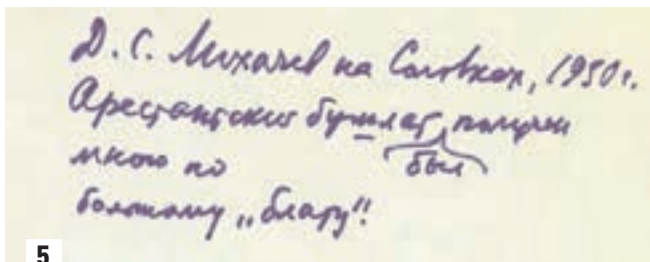 Д. С. Лихачев на Соловках, 1930 г.
Арестантский бушлат получен
был
мною по
большому „блату“!
5